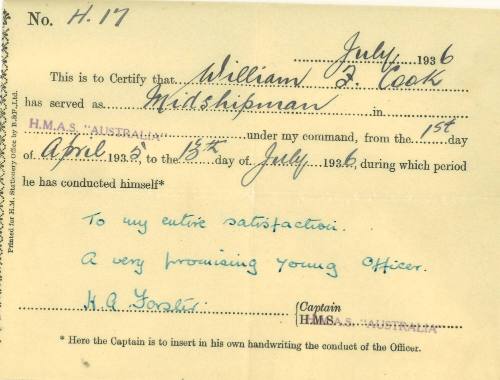 No. H.17
July 1936
This is to Certify that William F. Cook
has served as Midshipman in
H.M.A.S. "AUSTRALIA" under my command, from the 1st day
of April 1935, to the 13th day of July 1936, during which period
he has conducted himself*
To my entire satisfaction.
A very promising young Officer.
H A Forster.
Captain
H.M.S. H.M.A.S. "AUSTRALIA"
* Here the Captain is to insert in his own handwriting the conduct of the Officer.
Printed for H.M. Stationery Office by